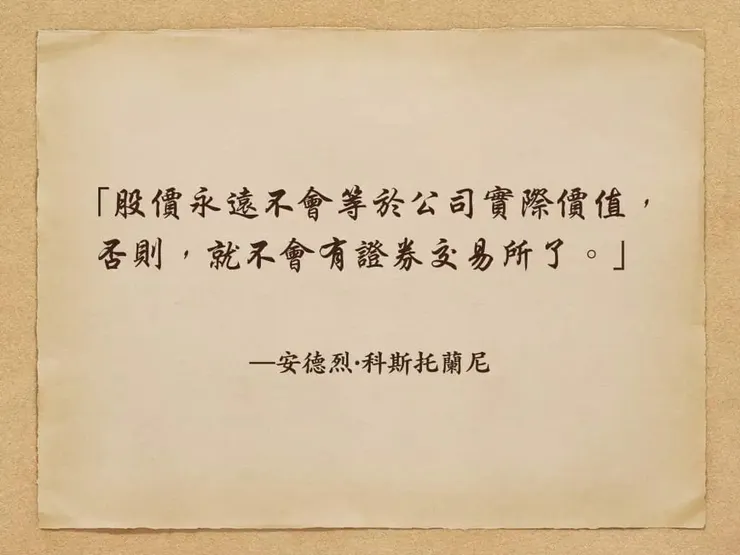 「股價永遠不會等於公司實際價值，
否則，就不會有證券交易所了。」
—安德烈·科斯托蘭尼